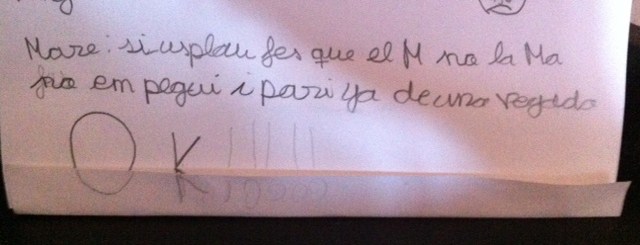 Mare: siusplau fes que el M no la Ma
no em pegui i pari ya de una vegada
OK!!!!!